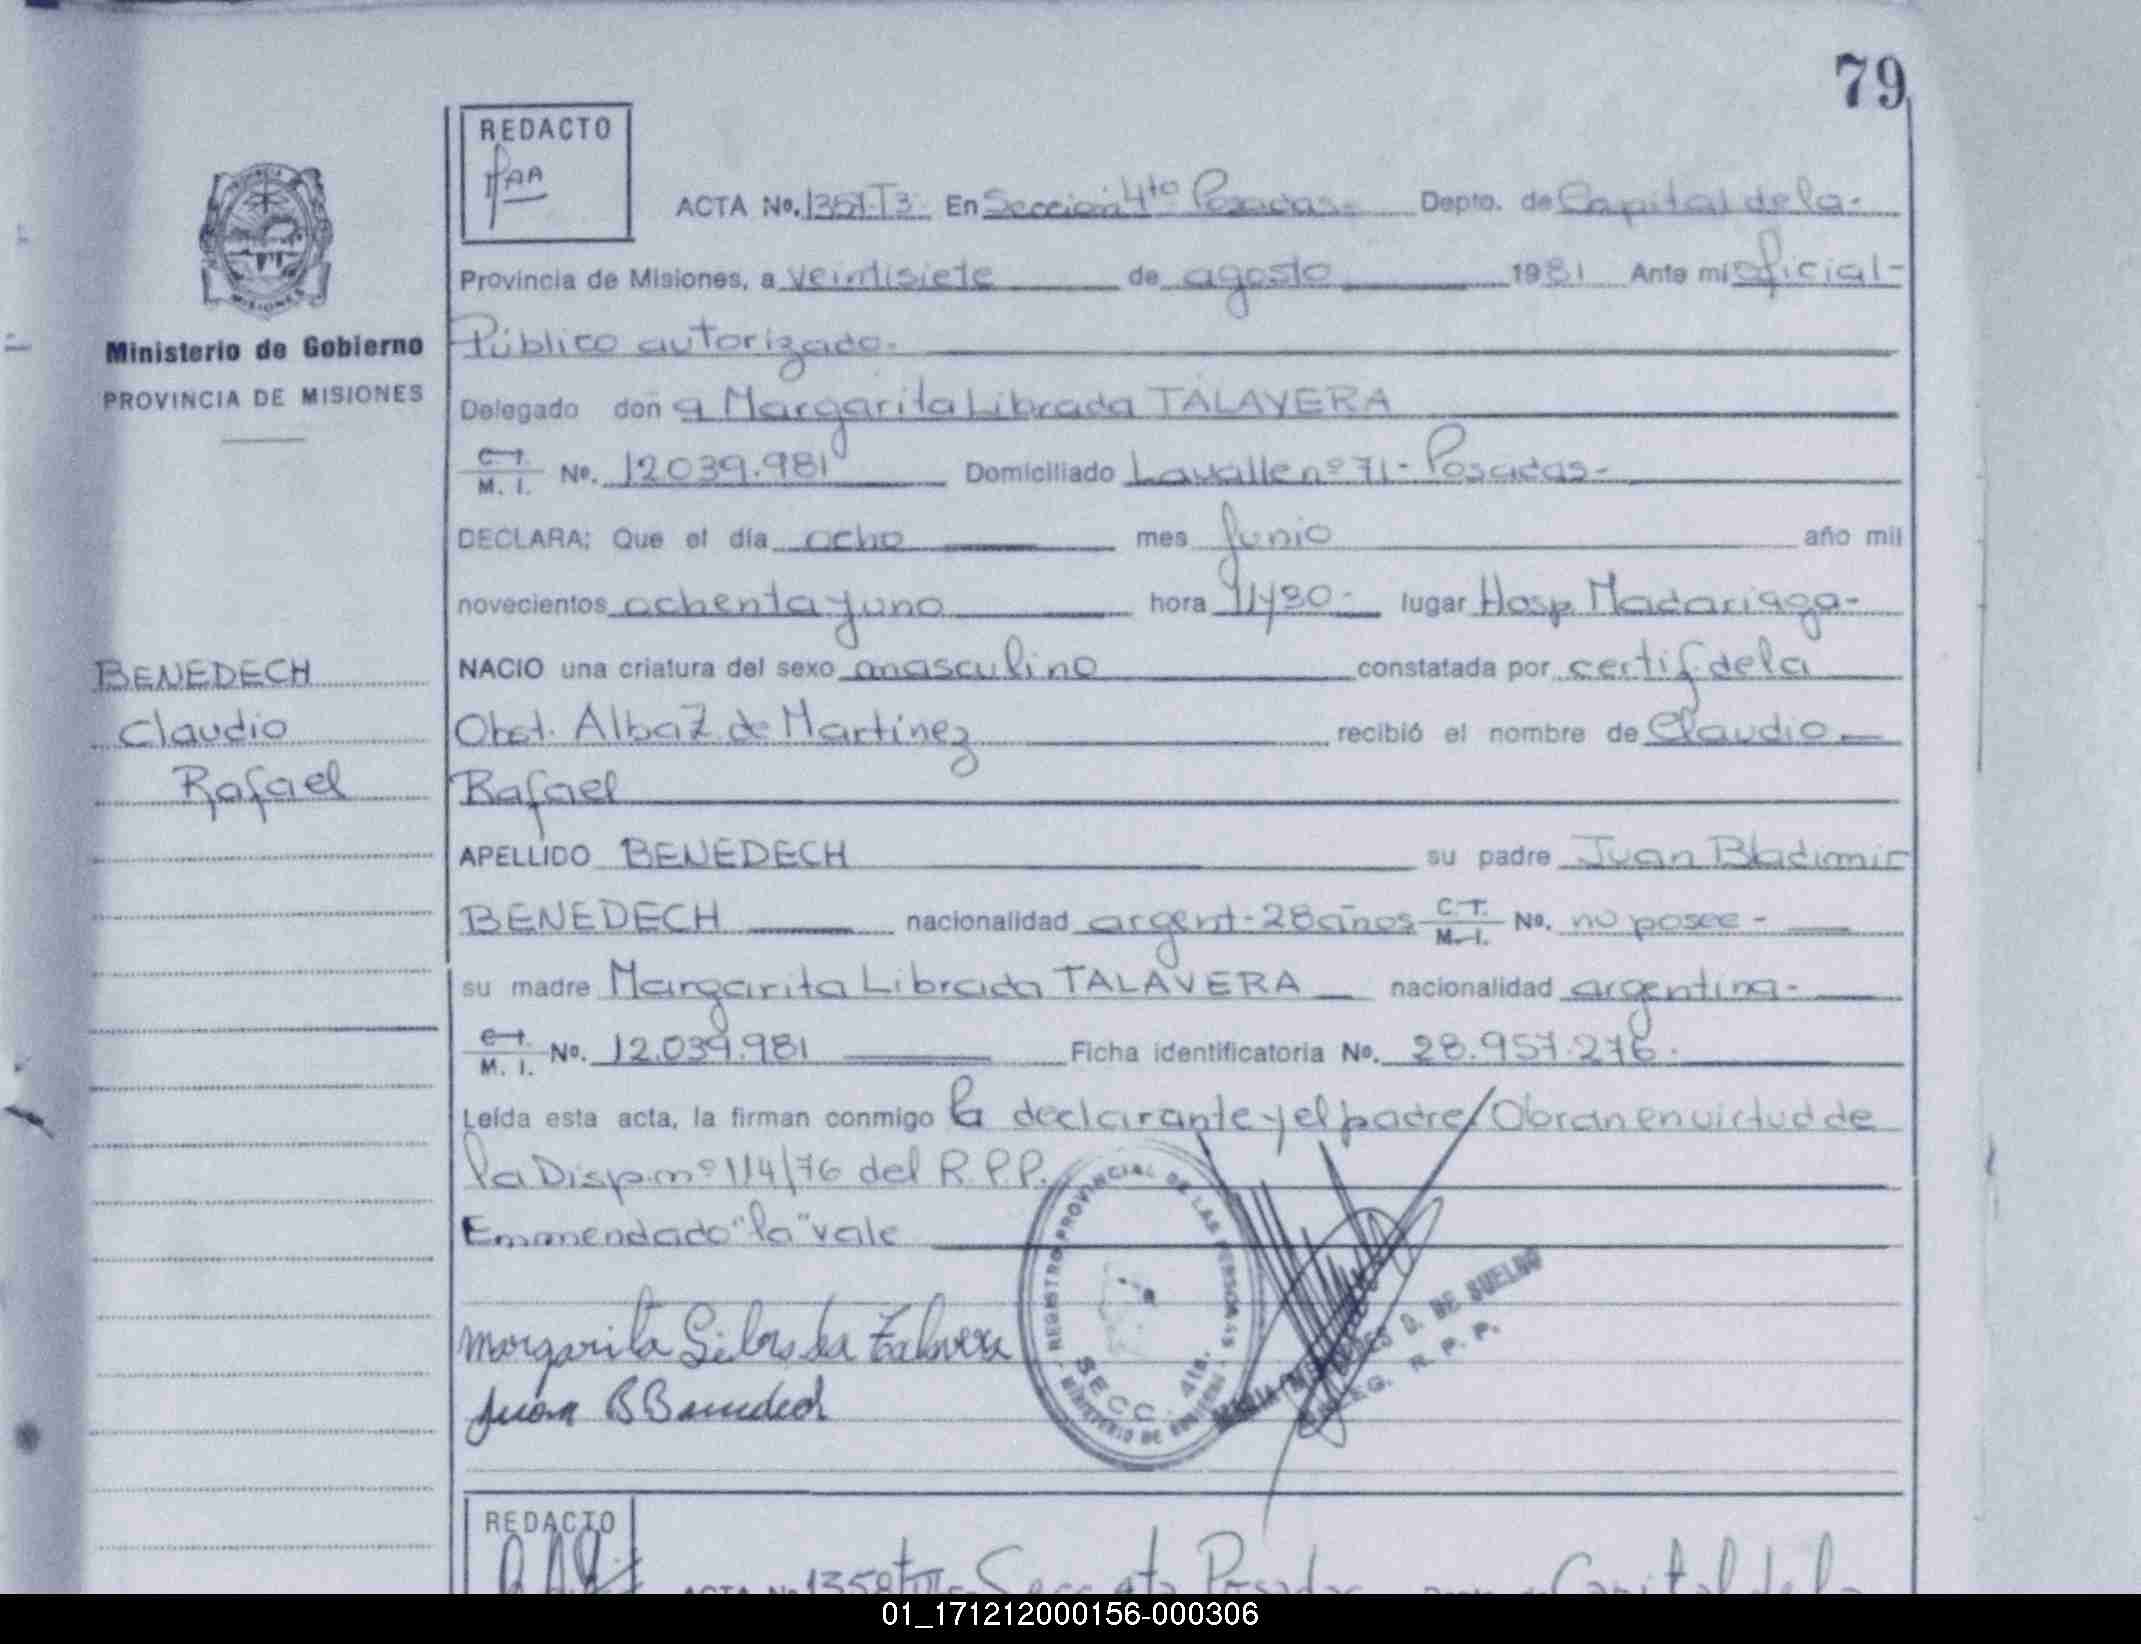 79
REDACTO
ACTA No. 1357-T3 En Sección 4ta Posadas. Depto. de Capital de la-
Provincia de Misiones, a veintisiete de agosto 1981 Ante mi oficial-
Ministerio de Gobierno
PROVINCIA DE MISIONES
Público autorizado.
Delegado don a Margarita Librada TALAVERA
C.T. M. I. No. 12.039.981 Domiciliado Lavalle nº 71- Posadas-
DECLARA: Que el día ocho mes Junio año mil
novecientos ochenta y uno hora lugar Hosp. Madariaga-
NACIO una criatura del sexo masculino constatada por certif. de la
Obst. Alba Z de Martínez recibió el nombre de Claudio
Rafael
BENEDECH
Claudio
Rafael
APELLIDO BENEDECH su padre Juan Bladimir
BENEDECH nacionalidad argent- 28 años C.T. M.I. No. no posee-
su madre Margarita Librada TALAVERA nacionalidad argentina-
C.T. M. I. No. 12.039.981 Ficha identificatoria No. 28.957.276.
Leída esta acta, la firman conmigo la declarante y el padre/Obran en virtud de
la Disp. nº 114/76 del R.P.P.
Enmendado "la" vale
Margarita Librada Talavera
Juan B Benedech
REGISTRO PROVINCIAL DE LAS PERSONAS
SECC. 4ta.
MINISTERIO DE GOBIERNO
D. DE SUELDO
R. P. P.
REDACTO
ACTA No 1358 Secc 4ta Posadas Capital de la
01_171212000156-000306